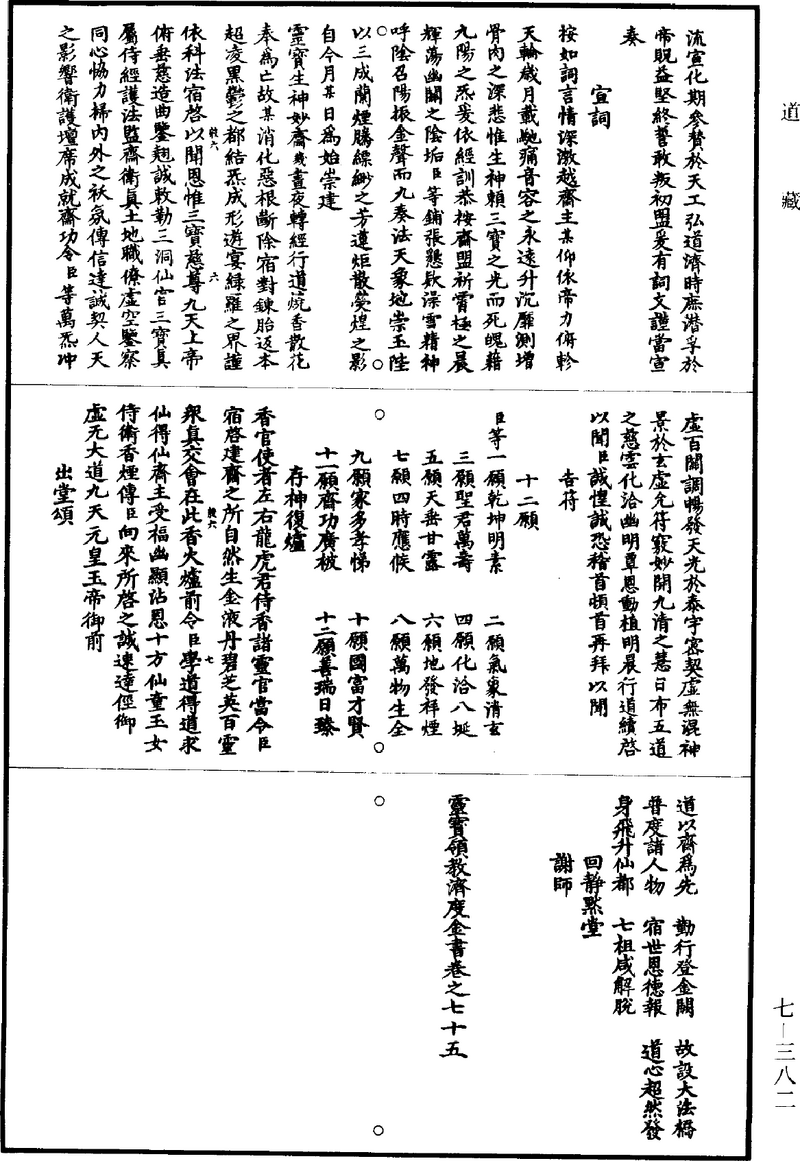 道藏
流宣化期參贊於天工弘道濟時庶潛孚於
帝貺益堅終誓敢叛初盟爰有詞文謹當宣
奏
宣詞
按如詞言情深激越齋主某仰依帝力俯軫
天輪歲月載馳痛音容之永遠升沉靡測增
骨肉之深悲惟生神賴三寶之光而死魄藉
九陽之炁爰依經訓恭按齋盟祈霄極之晨
輝蕩幽關之陰垢臣等鋪張懇欵澡雪精神
呼陰召陽振金聲而九奏法天象地崇玉陛
以三成蘭煙騰縹緲之芳蓮炬散熒煌之影
自今月某日為始崇建
靈寶生神妙齋幾晝夜轉經行道燒香散花
奉為亡故某消化惡根斷除宿對鍊胎返本
超凌黑鬱之都結炁成形遊宴綠羅之界謹
依科法宿啓以聞恩惟三寶慈尊九天上帝
俯垂慈造曲鑒翹誠敕勒三洞仙官三寶真
屬侍經護法監齋衛真土地職僚虛空鑒察
同心恊力掃內外之祅氛傳信達誠契人天
之影響衛護壇席成就齋功令臣等萬炁冲
虛百關調暢發天光於泰宇密契虛無混神
景於玄虛允符竅妙開九清之慧日布五道
之慈雲化洽幽明覃恩動植明晨行道續啓
以聞臣誠惶誠恐稽首頓首再拜以聞
告符
十二願
臣等一願乾坤明素 二願氣象清玄
三願聖君萬壽 四願化洽八埏
五願天垂甘露 六願地發祥煙
七願四時應候 八願萬物生全
九願家多孝悌 十願國富才賢
十一願齋功廣被 十二願善瑞日臻
存神復爐
香官使者左右龍虎君侍香諸靈官當令臣
宿啓建齋之所自然生金液丹碧芝英百靈
衆真交會在此香火爐前令臣學道得道求
仙得仙齋主受福幽顯沾恩十方仙童玉女
侍衛香煙傳臣向來所啓之誠速達徑御
虛无大道九天元皇玉帝御前
出堂頌
道以齋為先 勤行登金闕 故設大法橋
普度諸人物 宿世恩德報 道心超然發
身飛升仙都 七祖咸解脫
回靜默堂
謝師
靈寶領教濟度金書卷之七十五
七—三八二